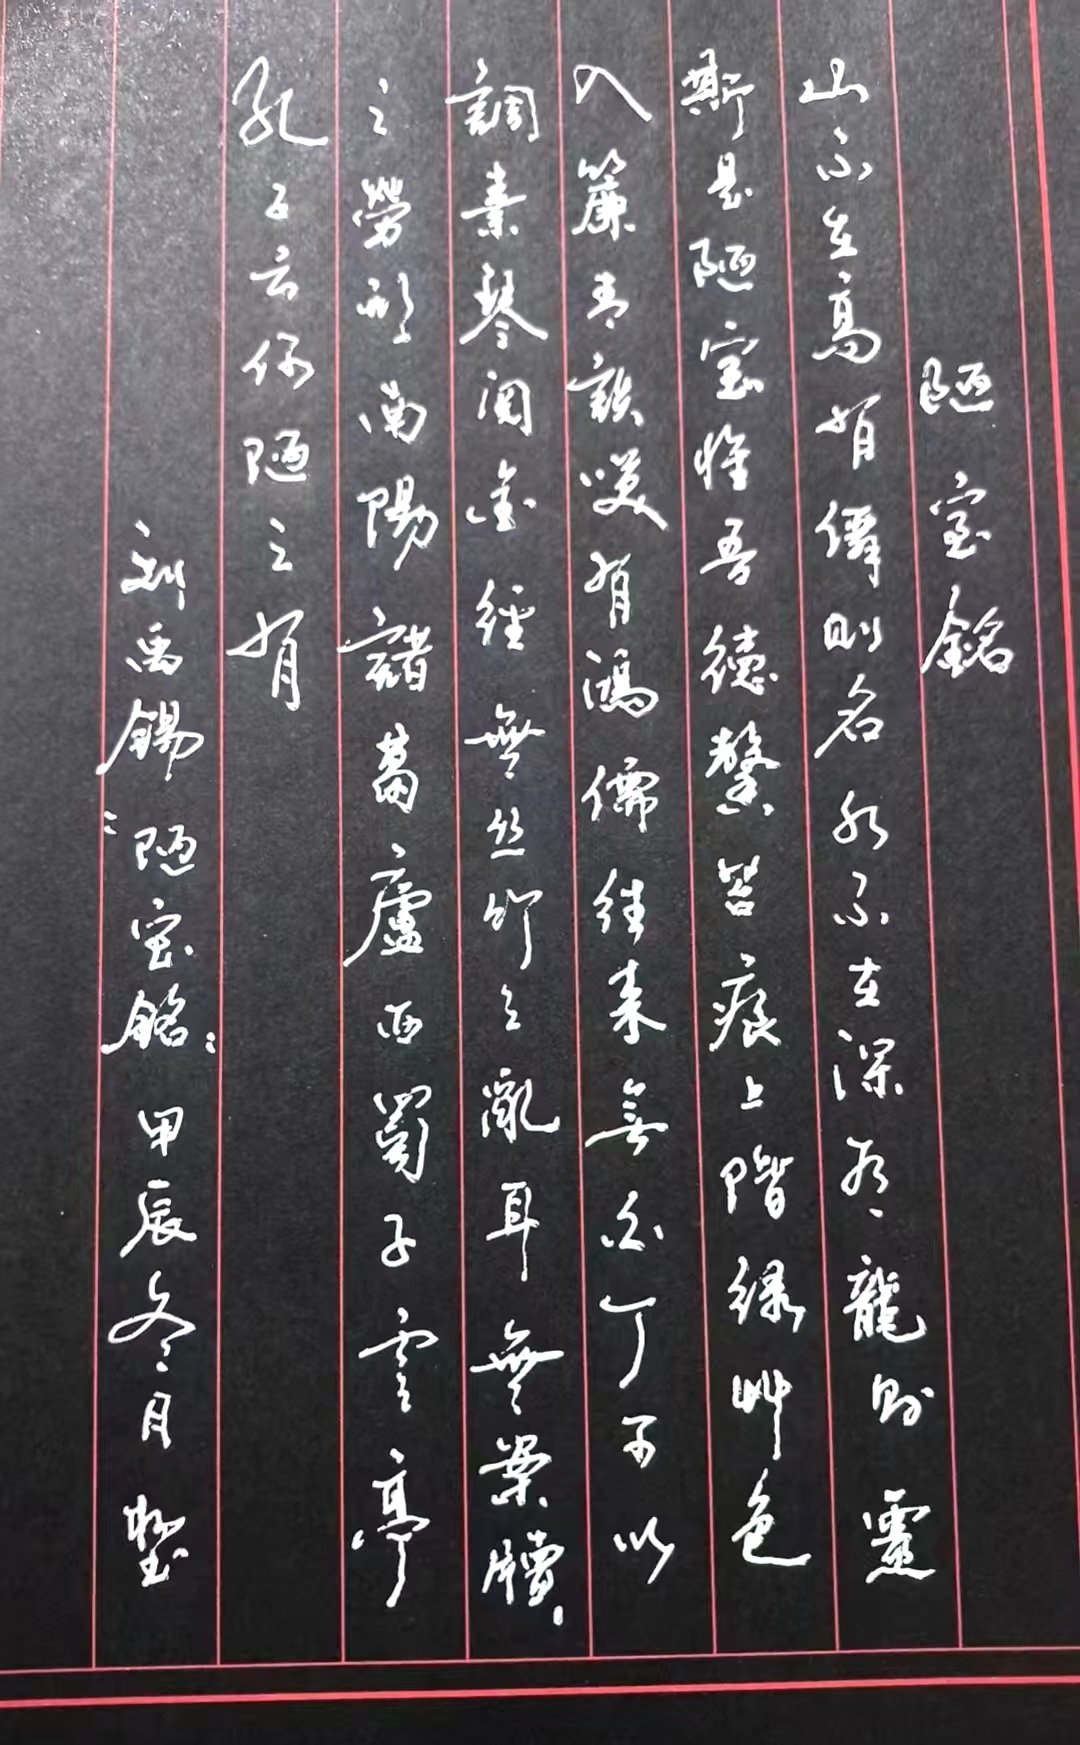 陋室銘
山不在高有僊則名水不在深有龍則靈
斯是陋室惟吾德馨苔痕上階綠艸色
入簾青談唉有鴻儒往来無白丁可以
調素琴閱金經無丝竹之亂耳無案牘
之勞形南陽諸葛廬西蜀子雲亭
孔子云何陋之有
刘禹錫：陋室銘：甲辰冬月